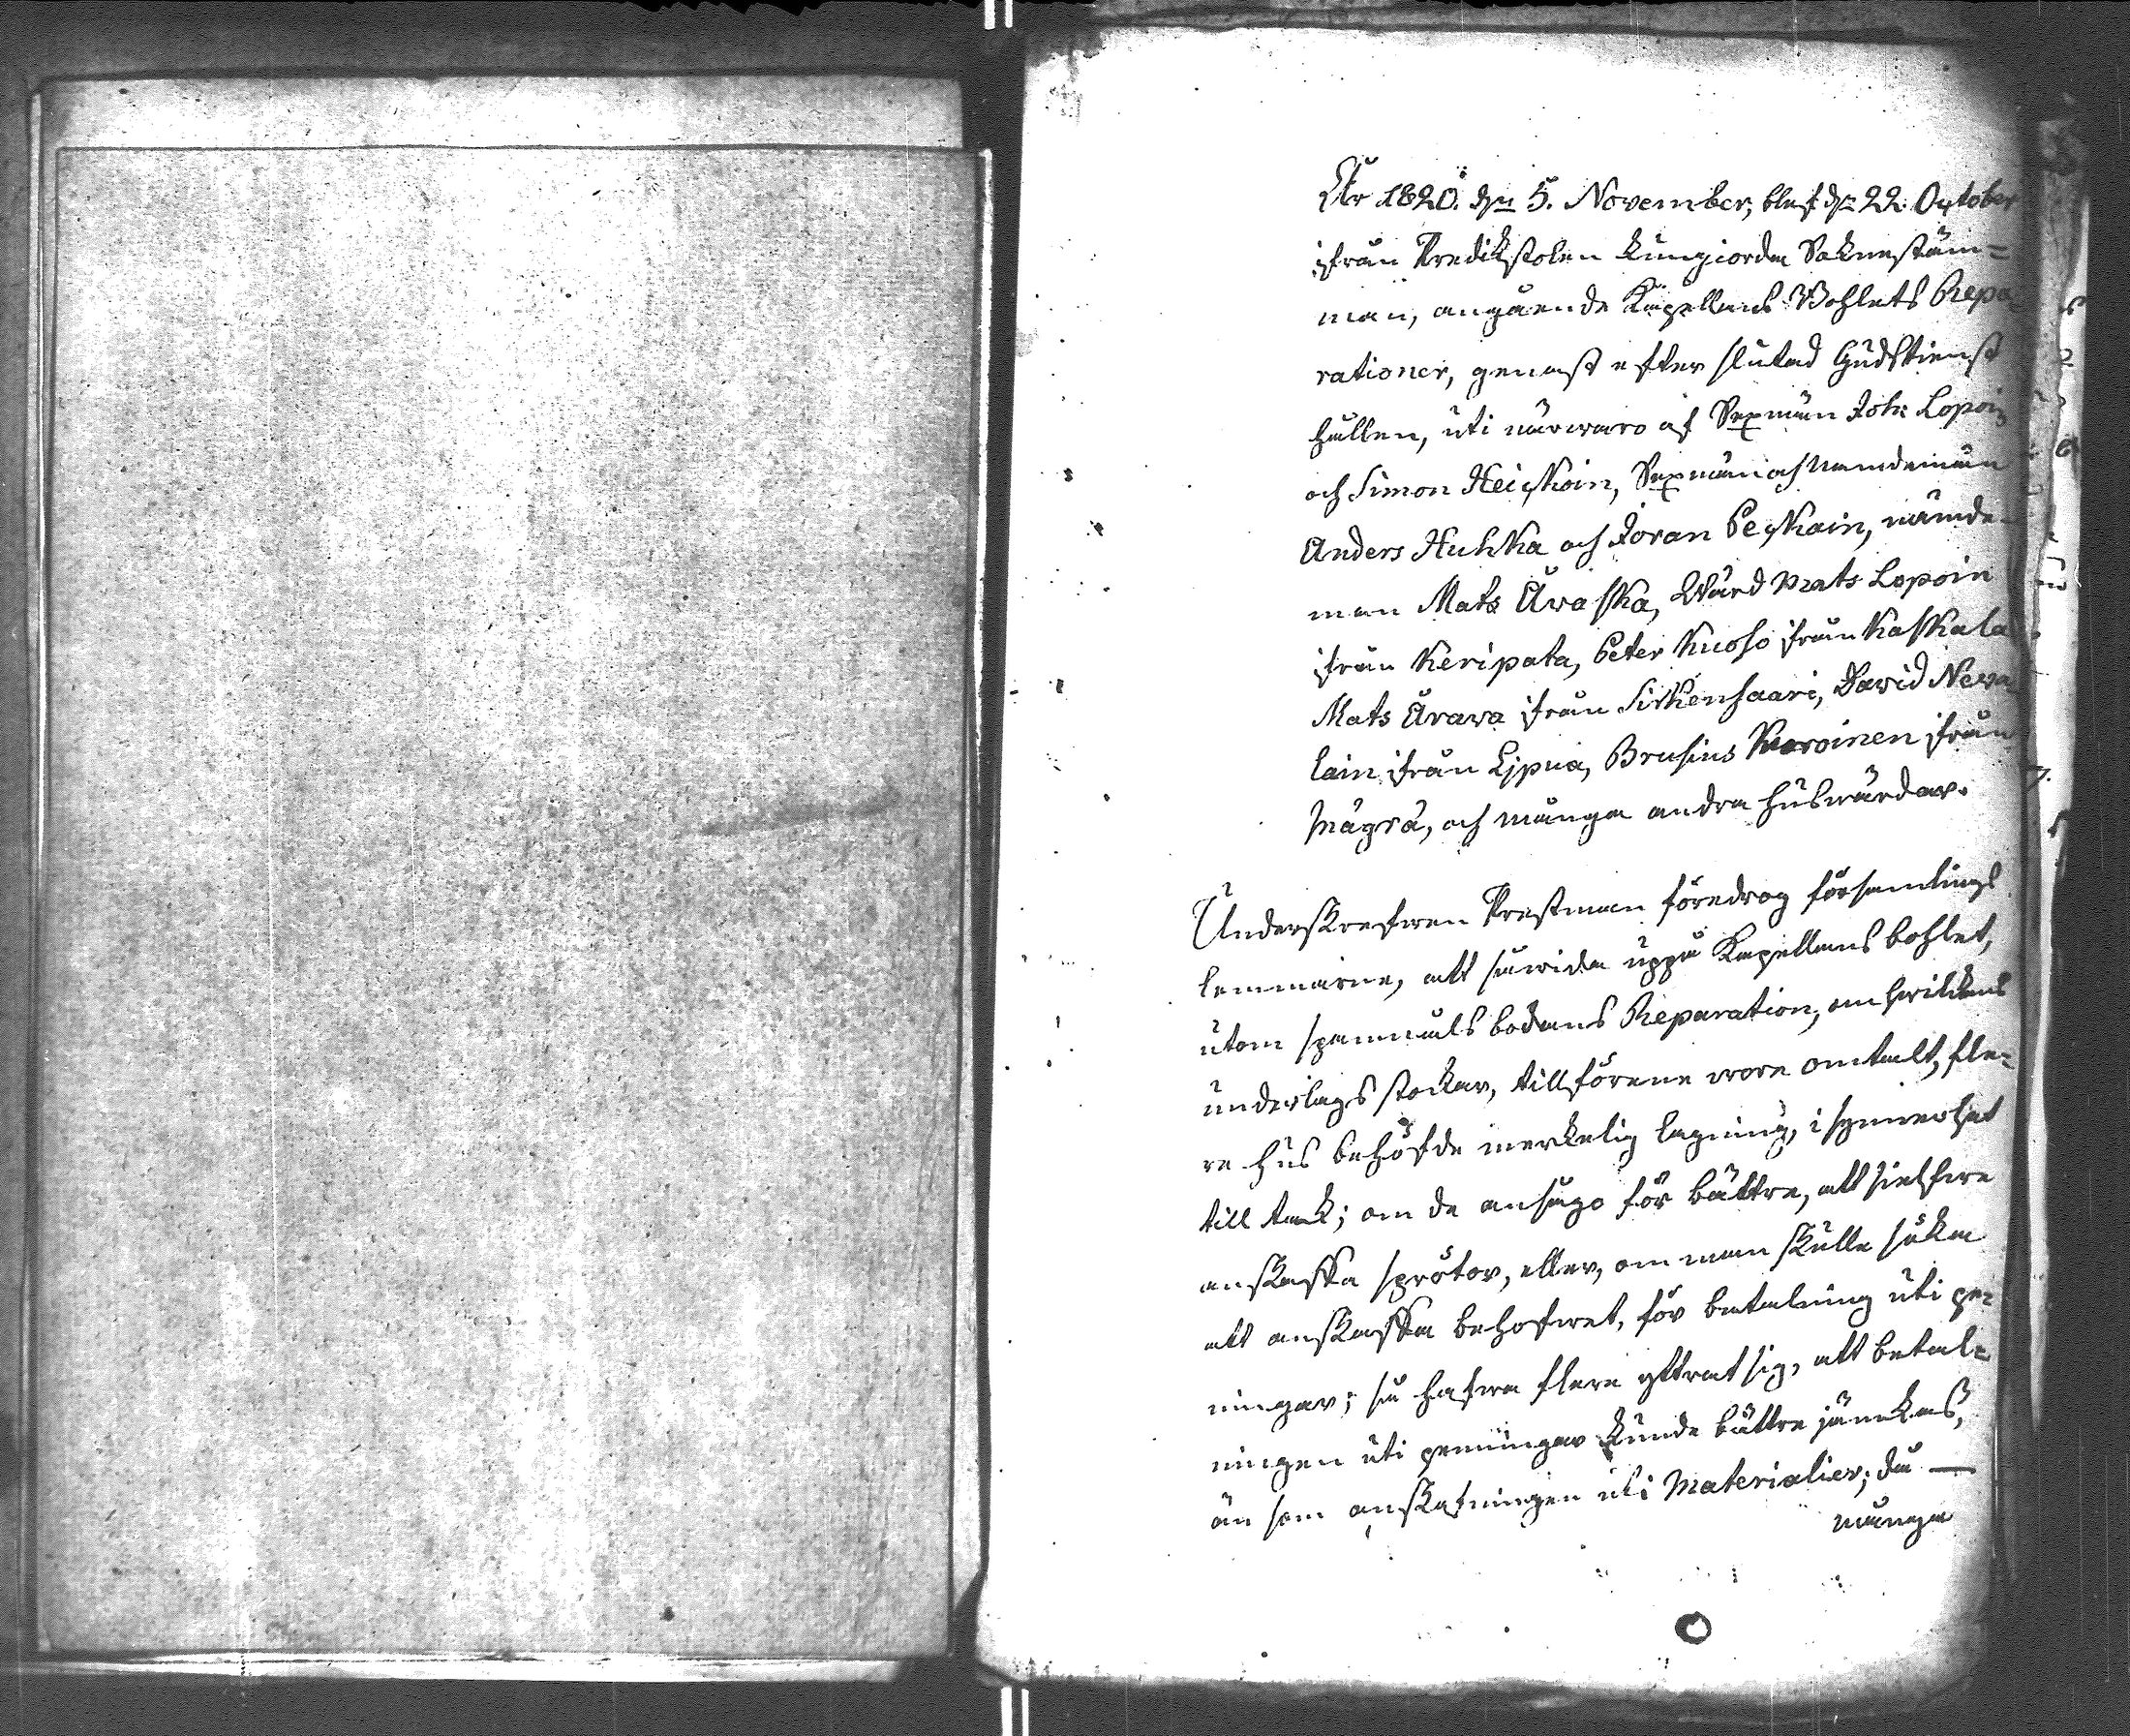 År 1820. dn 5. November, blef dn 22 October
ifrån Predikstolen kungiorda Soknestäm=
man, angående Kapellans Bohlets Repa=
rationer, genast efter slutad Gudstienst
hållen, uti närwaro af Sexmän Joh: Lopoin
och Simon Heiskoin, Sexmän och Nämdemän
Anders Huhka och Joran Peskoin, nämde=
man Mats Äwaska, Wärd Mats Lopoin
ifrån Keripata, Peter Kuoso ifrån Kaskala
Mats Ärawa ifrån Sirkensaari, David Neva=
lain ifrån Lipua, Brusius Kuroinen ifrån
Mägrä, och många andra huswärdar.
Underskrefwen Prestman föredrog församlings
lemmarne, att såwida uppå Kapellans bohlet,
utom spanmåls bodans Reparation, om hwilkens
underlags stockar, tillförene wore omtalt, fle=
re hus behöfde merkelig lagning, i synnerhet
till tak; om de ansågo för bättre, att sielfwe
anskaffa spröter, eller, om man skulle söka
att anskaffa behofwet, för betalning uti pe=
ningar; så hafwa flere yttrat sig, att betal=
ningen uti penningar kunde bättre jämkas,
än som anskafningen uti Materialier; då —
många